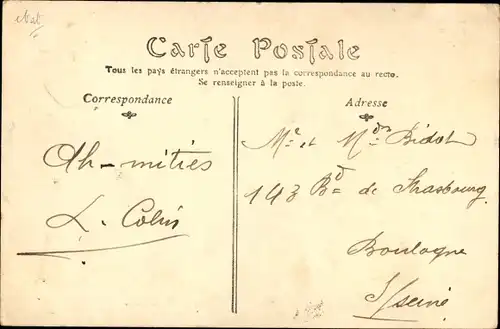 Carte Postale
Tous les pays étrangers n'acceptent pas la correspondance au recto.
Se renseigner à la poste.
Correspondance
Adresse
Ah-mitiés
L. Colin
Mr et Mme Bidot
143 Bd de Strasbourg
Boulogne
s/seine